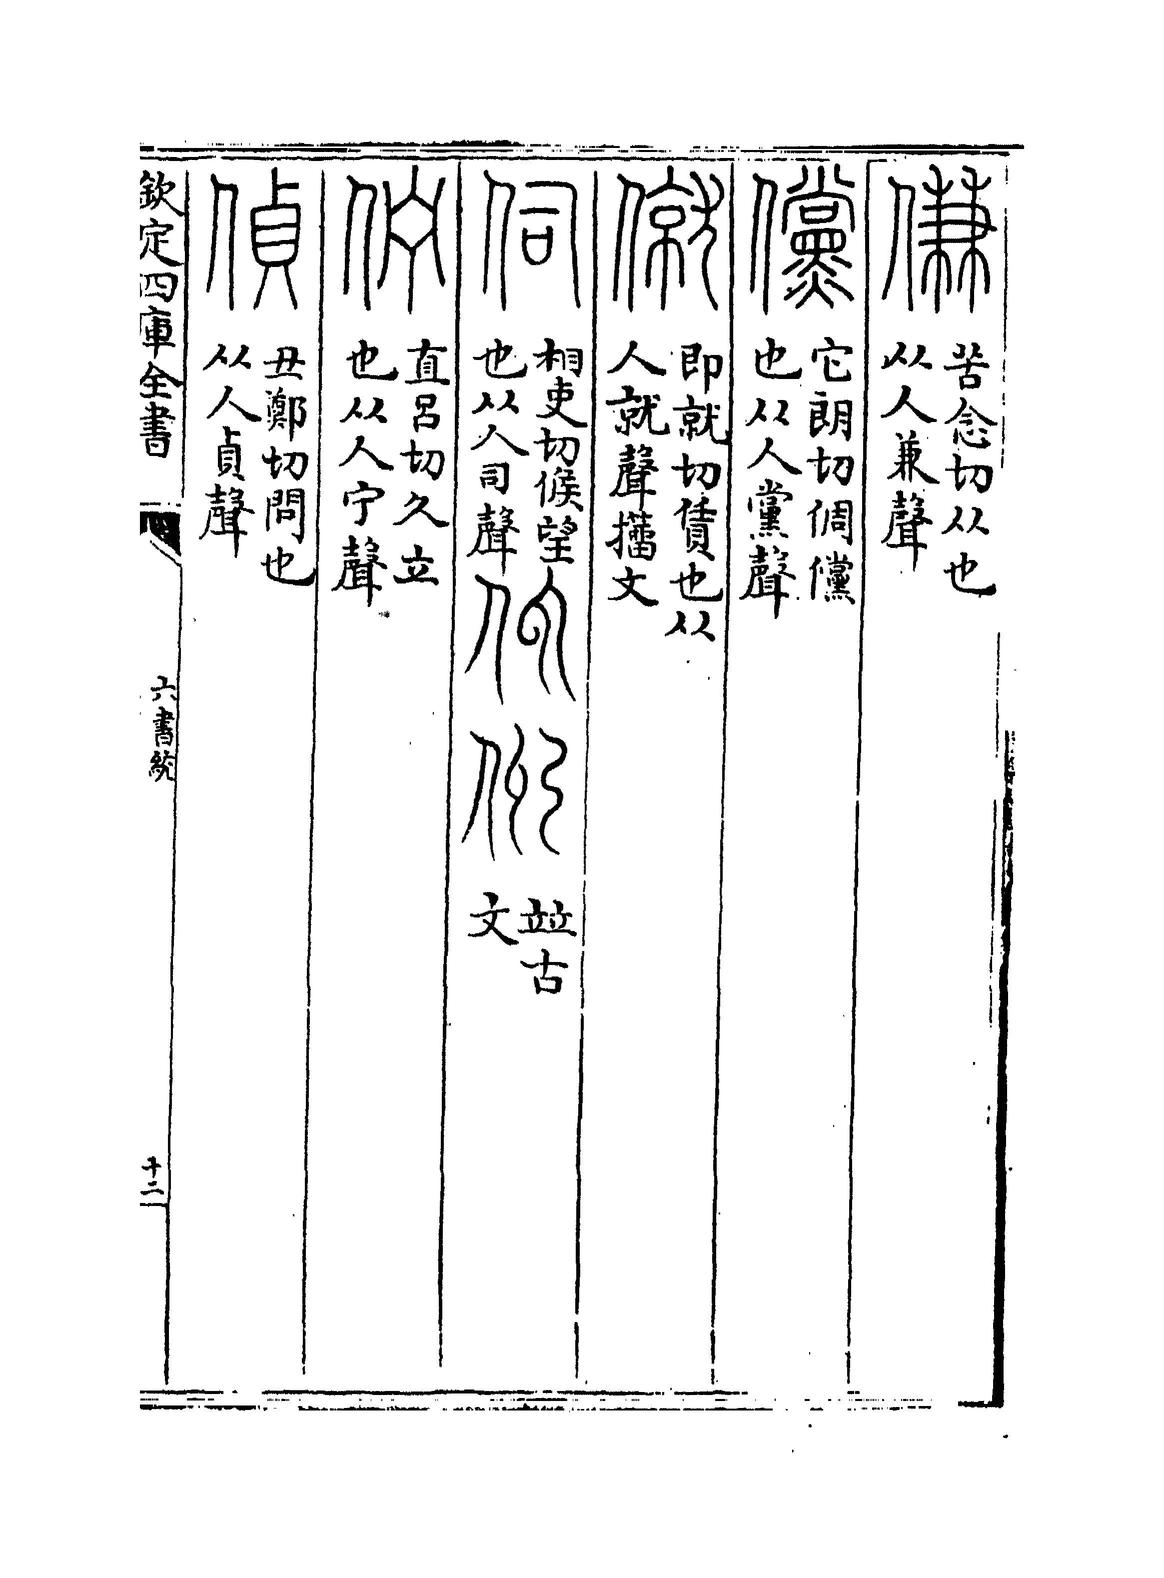 傔 苦念切从也从人兼聲
儻 它朗切倜儻也从人黨聲
僦 即就切賃也从人就聲籀文
伺 相吏切候望也从人司聲 竝古文
佇 直呂切久立也从人宁聲
偵 丑鄭切問也从人貞聲
欽定四庫全書 六書統 十二